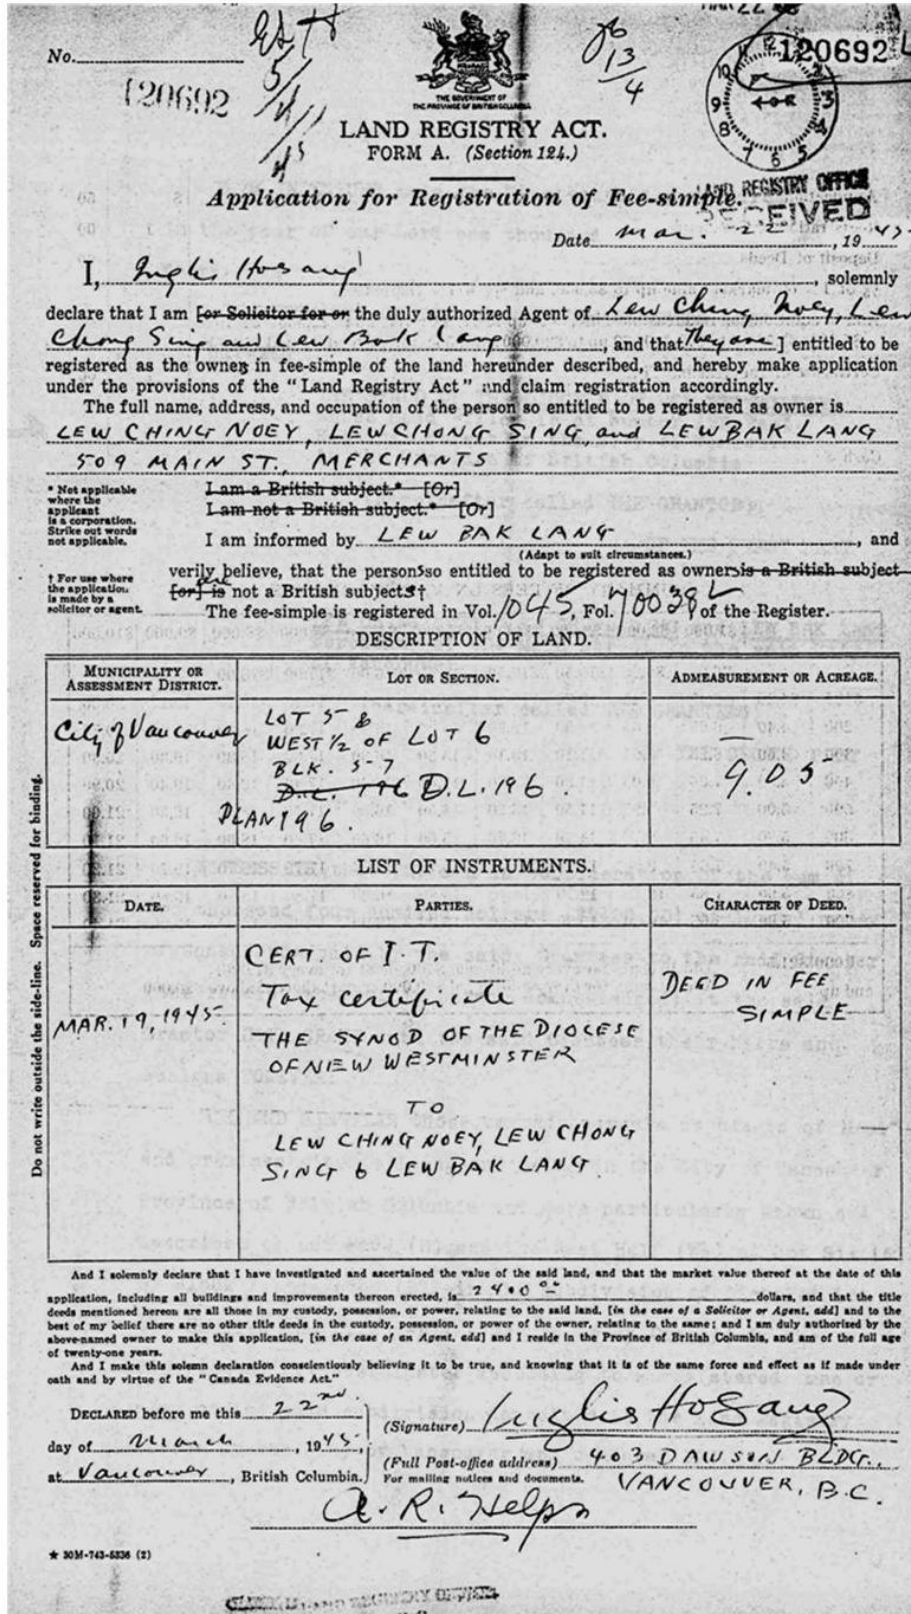 MAR 22
No.
120692
13/4
120692
THE GOVERNMENT OF
THE PROVINCE OF BRITISH COLUMBIA
LAND REGISTRY ACT.
FORM A. (Section 124.)
Application for Registration of Fee-simple.
LAND REGISTRY OFFICE
RECEIVED
Date Mar. 22, 1945
I, Inglis Hosang, solemnly
declare that I am [or Solicitor for or the duly authorized Agent of Lew Ching Noey, Lew
Chong Sing and Lew Bak Lang, and that They are] entitled to be
registered as the owners in fee-simple of the land hereunder described, and hereby make application
under the provisions of the "Land Registry Act" and claim registration accordingly.
The full name, address, and occupation of the person so entitled to be registered as owner is
LEW CHING NOEY, LEW CHONG SING, and LEW BAK LANG
509 MAIN ST., MERCHANTS
* Not applicable where the applicant is a corporation. Strike out words not applicable.
I am a British subject.* [Or]
I am not a British subject.* [Or]
I am informed by LEW BAK LANG, and
(Adapt to suit circumstances.)
† For use where the application is made by a solicitor or agent.
verily believe, that the persons so entitled to be registered as owners is a British subject
[or] is are not a British subjects†
The fee-simple is registered in Vol. 1045, Fol. 70038 of the Register.
DESCRIPTION OF LAND.
MUNICIPALITY OR ASSESSMENT DISTRICT. LOT OR SECTION. ADMEASUREMENT OR ACREAGE.
City of Vancouver
LOT 5 &
WEST 1/2 OF LOT 6
BLK. 57
D.L. 196 D.L. 196.
PLAN 196.
9.05
LIST OF INSTRUMENTS.
DATE. PARTIES. CHARACTER OF DEED.
CERT. OF I.T.
Tax certificate
MAR. 19, 1945.
THE SYNOD OF THE DIOCESE
OF NEW WESTMINSTER
TO
LEW CHING NOEY, LEW CHONG
SING & LEW BAK LANG
DEED IN FEE
SIMPLE
Do not write outside the side-line. Space reserved for binding.
And I solemnly declare that I have investigated and ascertained the value of the said land, and that the market value thereof at the date of this
application, including all buildings and improvements thereon erected, is dollars, and that the title
deeds mentioned hereon are all those in my custody, possession, or power, relating to the said land, [in the case of a Solicitor or Agent, add] and to the
best of my belief there are no other title deeds in the custody, possession, or power of the owner, relating to the same; and I am duly authorized by the
above-named owner to make this application, [in the case of an Agent, add] and I reside in the Province of British Columbia, and am of the full age
of twenty-one years.
And I make this solemn declaration conscientiously believing it to be true, and knowing that it is of the same force and effect as if made under
oath and by virtue of the "Canada Evidence Act."
DECLARED before me this 22nd
day of March, 1945,
at Vancouver, British Columbia.
(Signature) Inglis HoSang
(Full Post-office address) 403 DAWSON BLDG.,
For mailing notices and documents. VANCOUVER, B.C.
A. R. Helps
★ 30M-743-5336 (2)